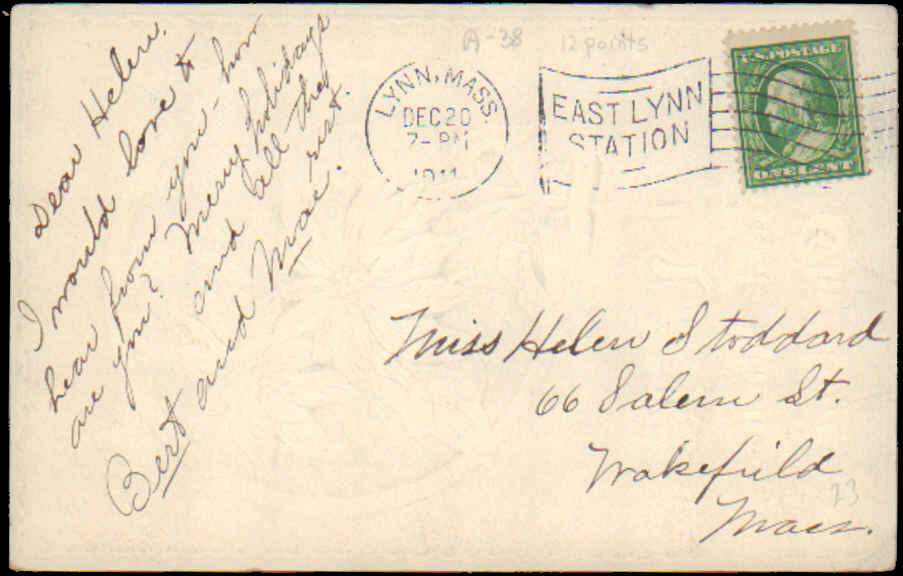 A-38 12 points
LYNN, MASS.
DEC 20
7-PM
1911
EAST LYNN
STATION
U.S. POSTAGE
ONE CENT
Dear Helen.
I would love to
hear from you - how
are you? Merry holidays
and all the
rest.
Bert and Mae.
Miss Helen Stoddard
66 Salem St.
Wakefield
Mass.
23